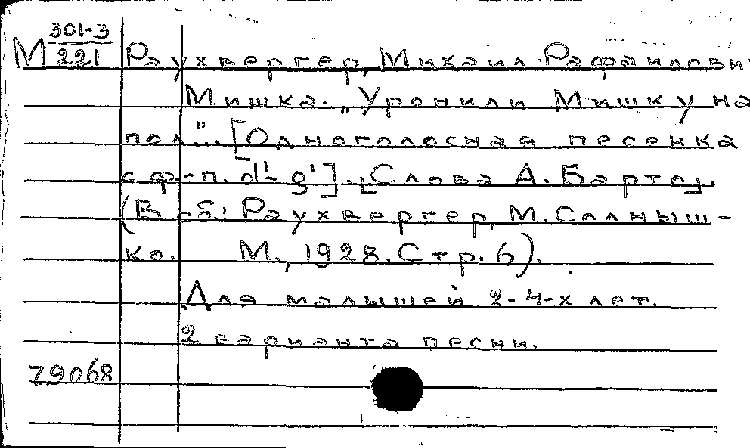 301-3
М 221 Раухвергер, Михаил Рафаилови
Мишка. „Уронили Мишку на
пол"... [Одноголосная песенка
с ф-п. d¹-g¹]. [Слова А. Барто]
(В сб: Раухвергер, М. Солныш-
ко. М., 1928. Стр. 6).
Для малышей 2-4-х лет.
2 варианта песни.
79068